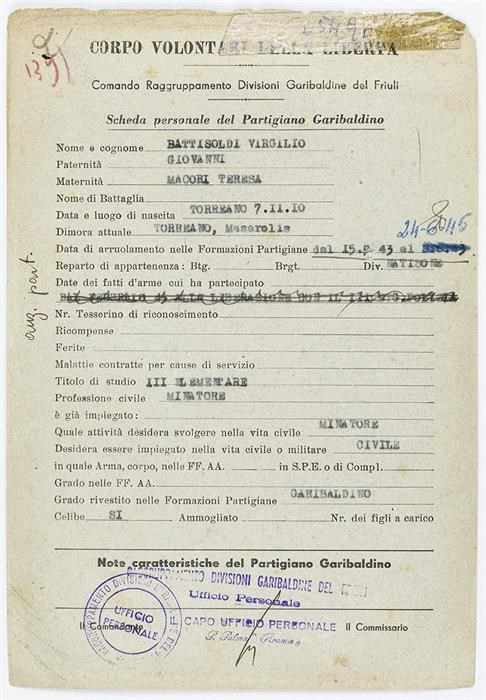 1391
CORPO VOLONTARI DELLA LIBERTA
Comando Raggruppamento Divisioni Garibaldine del Friuli
Scheda personale del Partigiano Garibaldino
Nome e cognome BATTISOLDI VIRGILIO
Paternità GIOVANNI
Maternità MACORI TERESA
Nome di Battaglia
Data e luogo di nascita TORREANO 7.11.10
Dimora attuale TORREANO, Masarolis
24-6-45
Data di arruolamento nelle Formazioni Partigiane dal 15.9.43 al
Reparto di appartenenza: Btg. Brgt. Div. NATISONE
Date dei fatti d'arme cui ha partecipato
DAL FEBBRAIO 45 ALLA LIBERAZIONE CON IL
Nr. Tesserino di riconoscimento
Ricompense
Ferite
Malattie contratte per cause di servizio
Titolo di studio III ELEMENTARE
Professione civile MINATORE
è già impiegato:
Quale attività desidera svolgere nella vita civile MINATORE
Desidera essere impiegato nella vita civile o militare CIVILE
in quale Arma, corpo, nelle FF. AA. in S.P.E. o di Compl.
Grado nelle FF. AA.
Grado rivestito nelle Formazioni Partigiane GARIBALDINO
Celibe SI Ammogliato Nr. dei figli a carico
aug. part.
Note caratteristiche del Partigiano Garibaldino
RAGGRUPPAMENTO DIVISIONI GARIBALDINE DEL FRIULI
Ufficio Personale
UFFICIO PERSONALE
Il Comandante CAPO UFFICIO PERSONALE Il Commissario